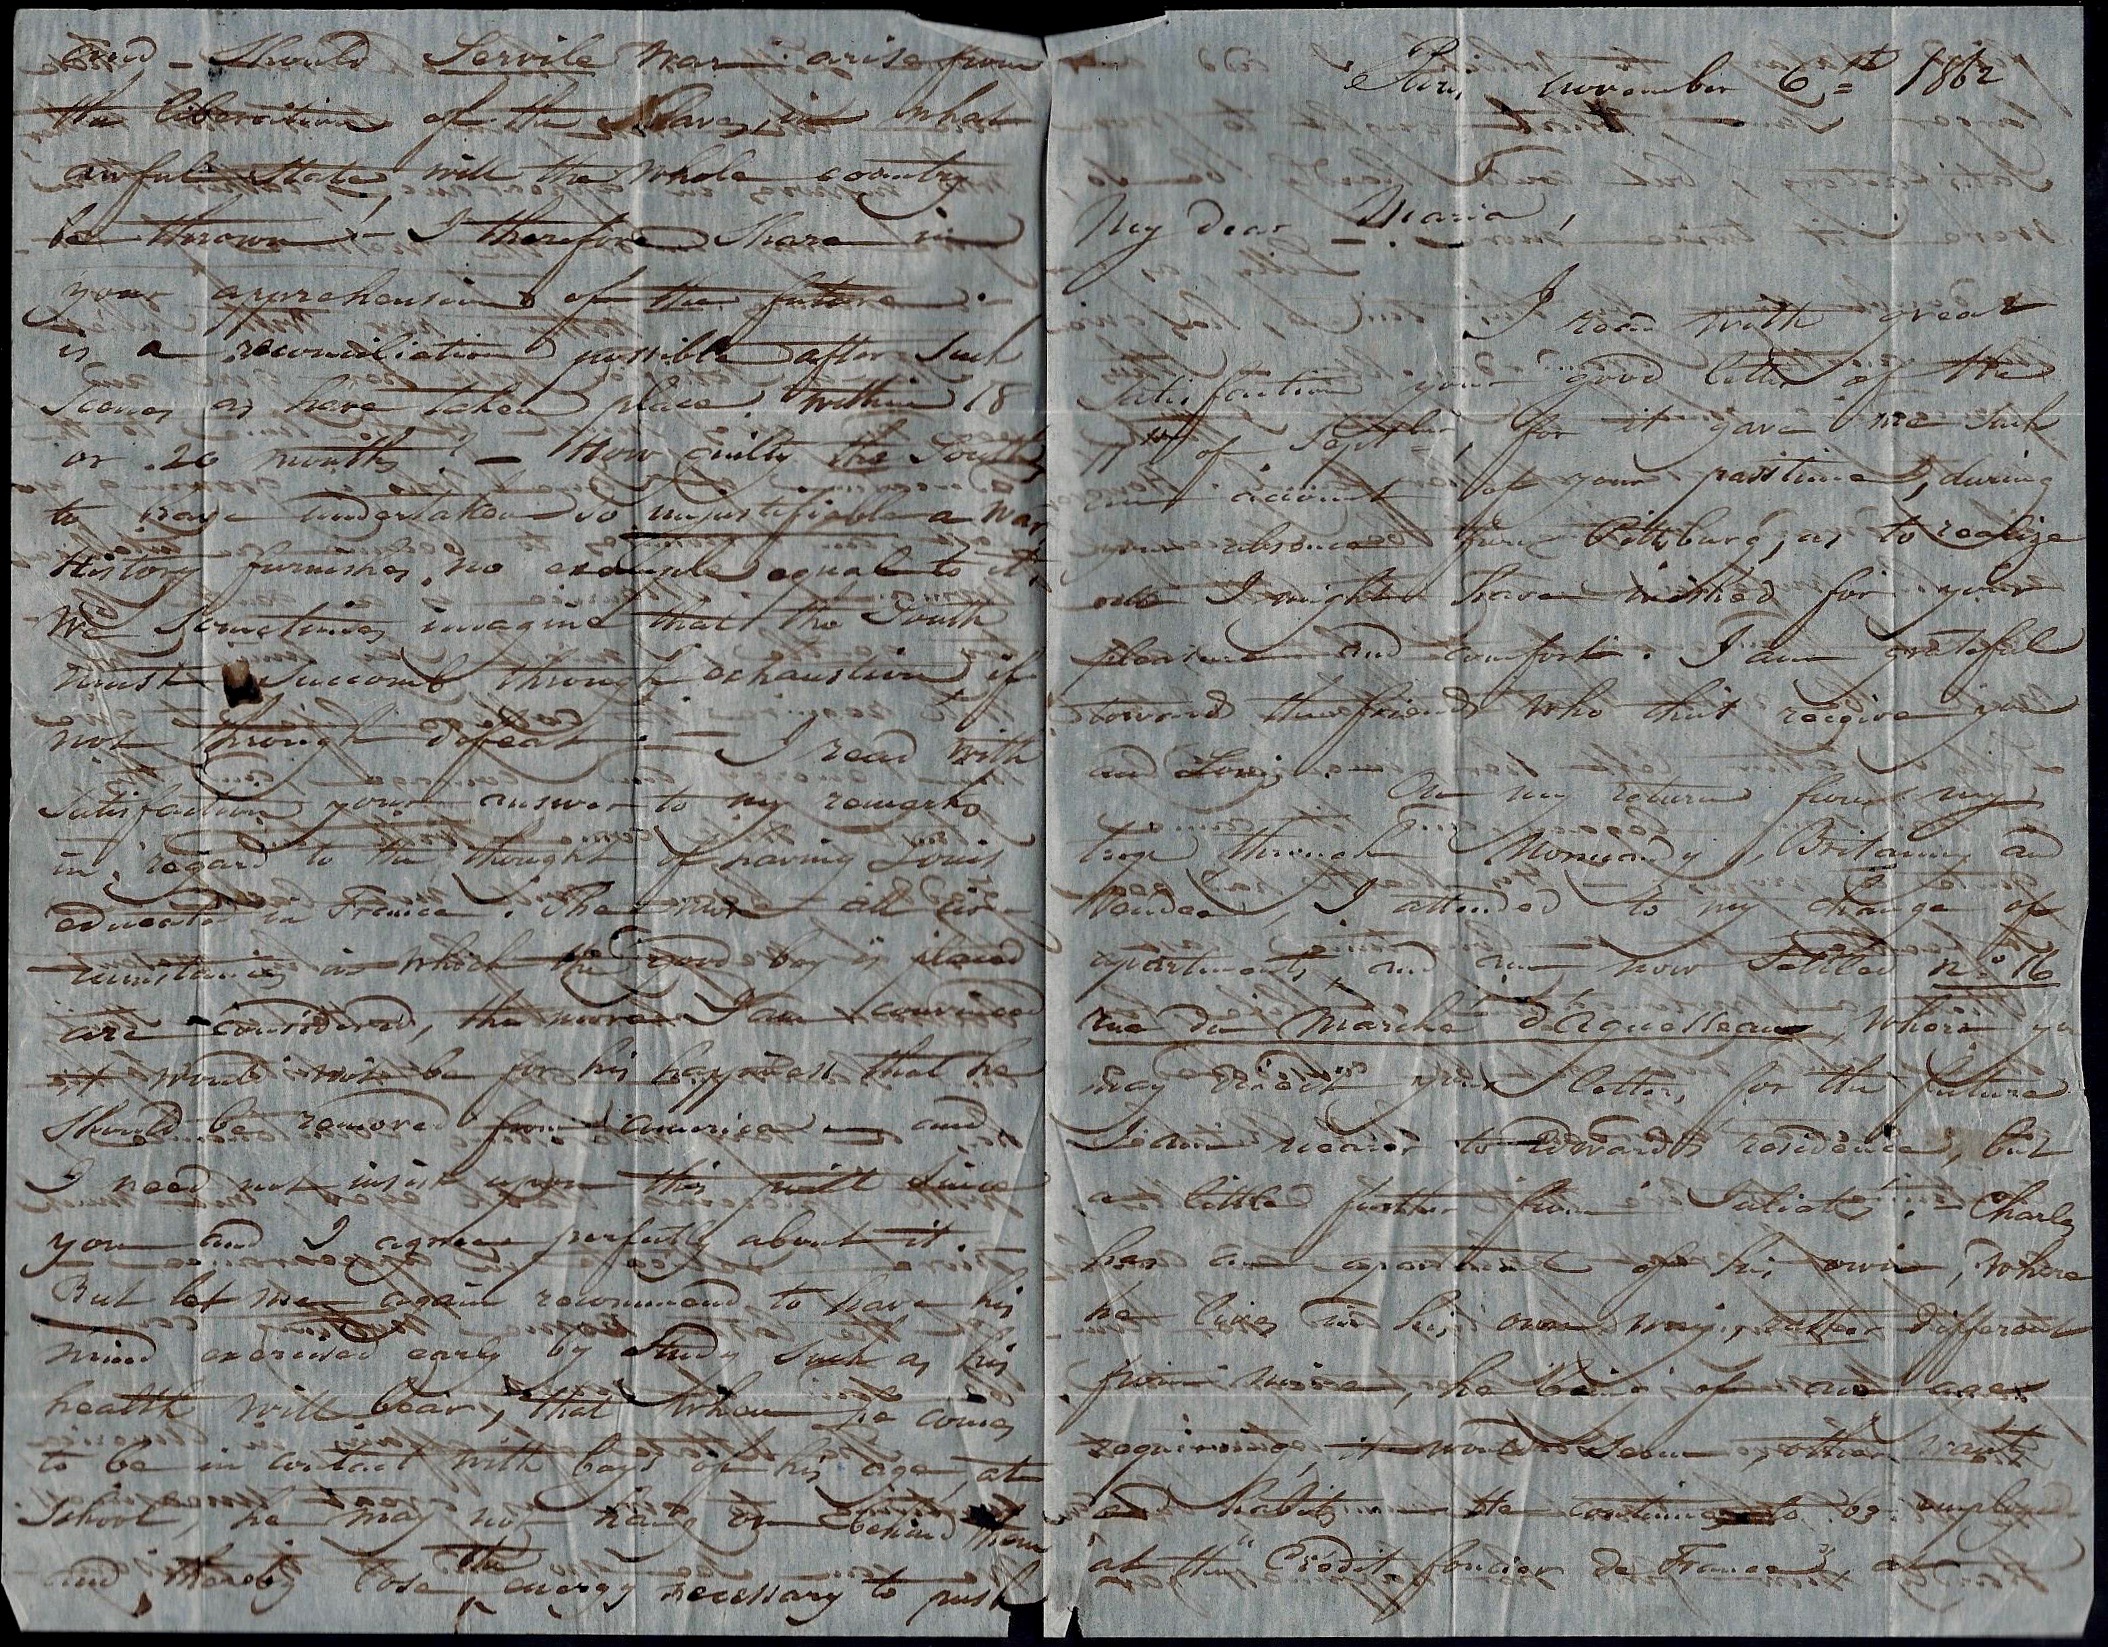 Paris November 6=th 1862
My dear Maria,
I read with great
satisfaction your good letter of the
11th of Septber, for it gave me such
an account of your passtime, during
your absence from Pittsburg, as to realize
one I might have wished for your
pleasure and comfort. I am grateful
toward the friends who thus receive you
and Louis. — On my return from my
trip through Normandy, Britanny and
Vendee, I attended to my change of
apartments, and am now settled n.° 16
rue du Marche d'Aguesseau, where you
may direct your letters for the future
I am nearer to Edward's residence, but
a little further from Juliats. — Charles
has an apartment of his own, where
he lives in his own way, rather different
from mine, he being of an age
requiring, it would seem, other wants
and habits — He continues to be employed
at the "Crédit foncier de France" at
end — Should Servile war arise from
the liberation of the Slaves, in what
awful state, will the whole country
be thrown — I therefore share in
your apprehensions of the future. —
is a reconciliation possible after such
Scenes as have taken place within 18
or 20 months? — How guilty the South
to have undertaken so unjustifiable a war
History furnishes no example equal to it,
We Sometimes imagine that the South
must succomb through exhaustion if
not through defeat. — I read with
satisfaction your answer to my remarks
in regard to the thought of having Louis
educated in France. The more all cir-
cumstances in which the good boy is placed
are considered, the more I am convinced
it would not be for his happiness that he
should be removed from America — and
I need not insist upon this point since
you and I agree perfectly about it.
But let me again recommend to have his
mind exercised early by Study such as his
health will bear, that when he comes
to be in contact with boys of his age, at
School, he may not hang on behind them
and thereby lose the energy necessary to push